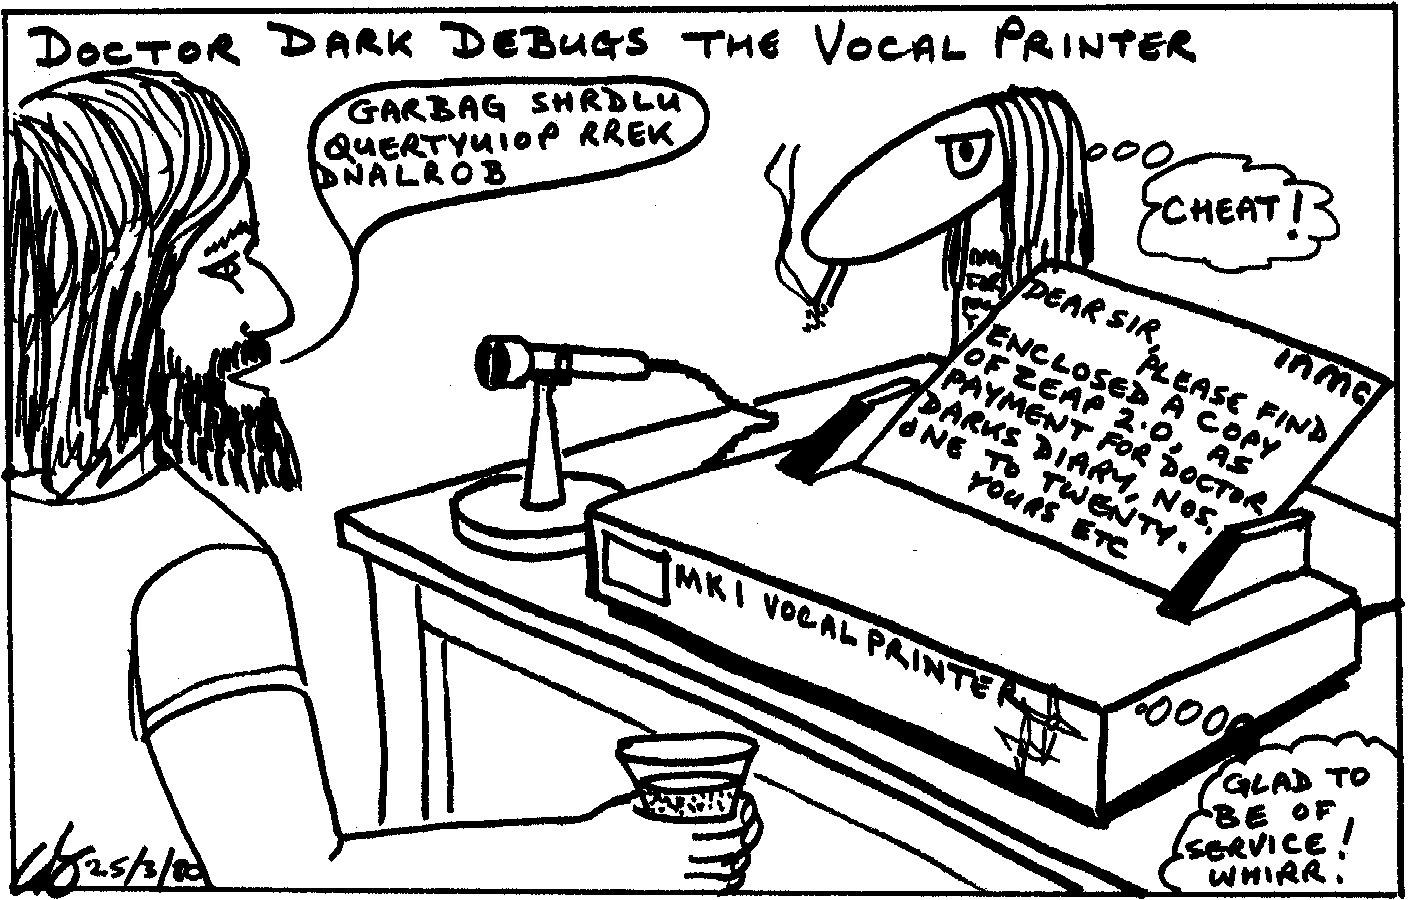 DOCTOR DARK DEBUGS THE VOCAL PRINTER
GARBAG SHRDLU
QUERTYUIOP RREK
DNALROB
CHEAT!
INMC
DEAR SIR,
PLEASE FIND
ENCLOSED A COPY
OF ZEAP 2.0, AS
PAYMENT FOR DOCTOR
DARKS DIARY, NOS.
ONE TO TWENTY.
YOURS ETC
MK I VOCAL PRINTER
GLAD TO
BE OF
SERVICE!
WHIRR.
25/3/80